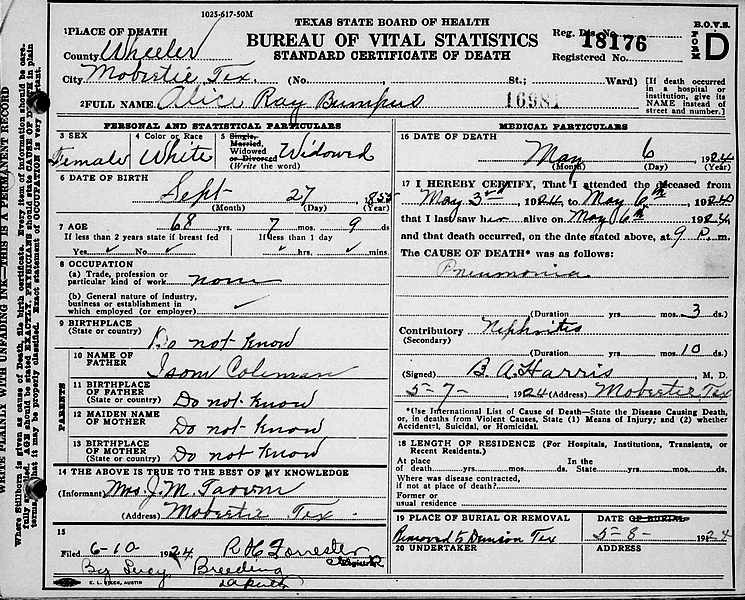 1025-617-50M
TEXAS STATE BOARD OF HEALTH
BUREAU OF VITAL STATISTICS
STANDARD CERTIFICATE OF DEATH
B.O.V.S.
FORM D
Reg. Dis. No.
18176
Registered No.
1 PLACE OF DEATH
County Wheeler
City Mobeetie Tex. (No. St.; Ward)
[If death occurred in a hospital or institution, give its NAME instead of street and number.]
2 FULL NAME Alice Ray Bumpus
16981
PERSONAL AND STATISTICAL PARTICULARS
3 SEX Female
4 Color or Race White
5 Single, Married, Widowed or Divorced (Write the word) Widowed
6 DATE OF BIRTH
Sept 27 1855
(Month) (Day) (Year)
7 AGE 68 yrs. 7 mos. 9 ds
If less than 2 years state if breast fed
If less than 1 day
Yes No hrs. mins.
8 OCCUPATION
(a) Trade, profession or
particular kind of work none
(b) General nature of industry,
business or establishment in
which employed (or employer)
9 BIRTHPLACE
(State or country) Do not know
PARENTS
10 NAME OF
FATHER Isom Coleman
11 BIRTHPLACE
OF FATHER
(State or country) Do not know
12 MAIDEN NAME
OF MOTHER Do not know
13 BIRTHPLACE
OF MOTHER
(State or country) Do not know
14 THE ABOVE IS TRUE TO THE BEST OF MY KNOWLEDGE
(Informant) Mrs J. M.
(Address) Mobeetie Tex
15
Filed 6-10 1924 R H Forrester
Registrar
By Lucy Breeding
E. L. STECK, AUSTIN
MEDICAL PARTICULARS
16 DATE OF DEATH
May 6 1924
(Month) (Day) (Year)
17 I HEREBY CERTIFY, That I attended the deceased from
May 3rd 1924 to May 6th 1924
that I last saw her alive on May 6th 1924
and that death occurred, on the date stated above, at 9 P. m.
The CAUSE OF DEATH* was as follows:
Pneumonia
(Duration yrs. mos. 3 ds.)
Contributory Nephritis
(Secondary)
(Duration yrs. mos. 10 ds.)
(Signed) B. A. Harris, M. D.
5-7- 1924 (Address) Mobeetie Tex
*Use International List of Cause of Death—State the Disease Causing Death,
or, in deaths from Violent Causes, State (1) Means of Injury; and (2) whether
Accidental, Suicidal, or Homicidal.
18 LENGTH OF RESIDENCE (For Hospitals, Institutions, Transients, or
Recent Residents.)
At place In the
of death yrs. mos. ds. State yrs. mos. ds.
Where was disease contracted,
if not at place of death?
Former or
usual residence
19 PLACE OF BURIAL OR REMOVAL
Removed to Denison Tex
DATE OF BURIAL
5-8- 1924
20 UNDERTAKER
ADDRESS
WRITE PLAINLY WITH UNFADING INK—THIS IS A PERMANENT RECORD